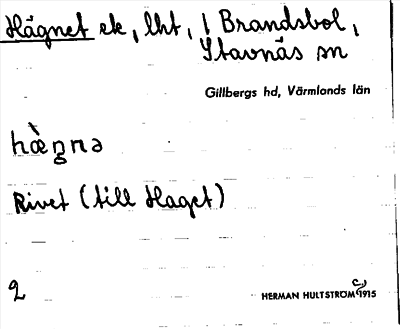 Hägnet ek, lht, i Brandsbol,
Stavnäs sn
Gillbergs hd, Värmlands län
hæ̀gnə
Rivet (till Haget)
2
HERMAN HULTSTRÖM 1915